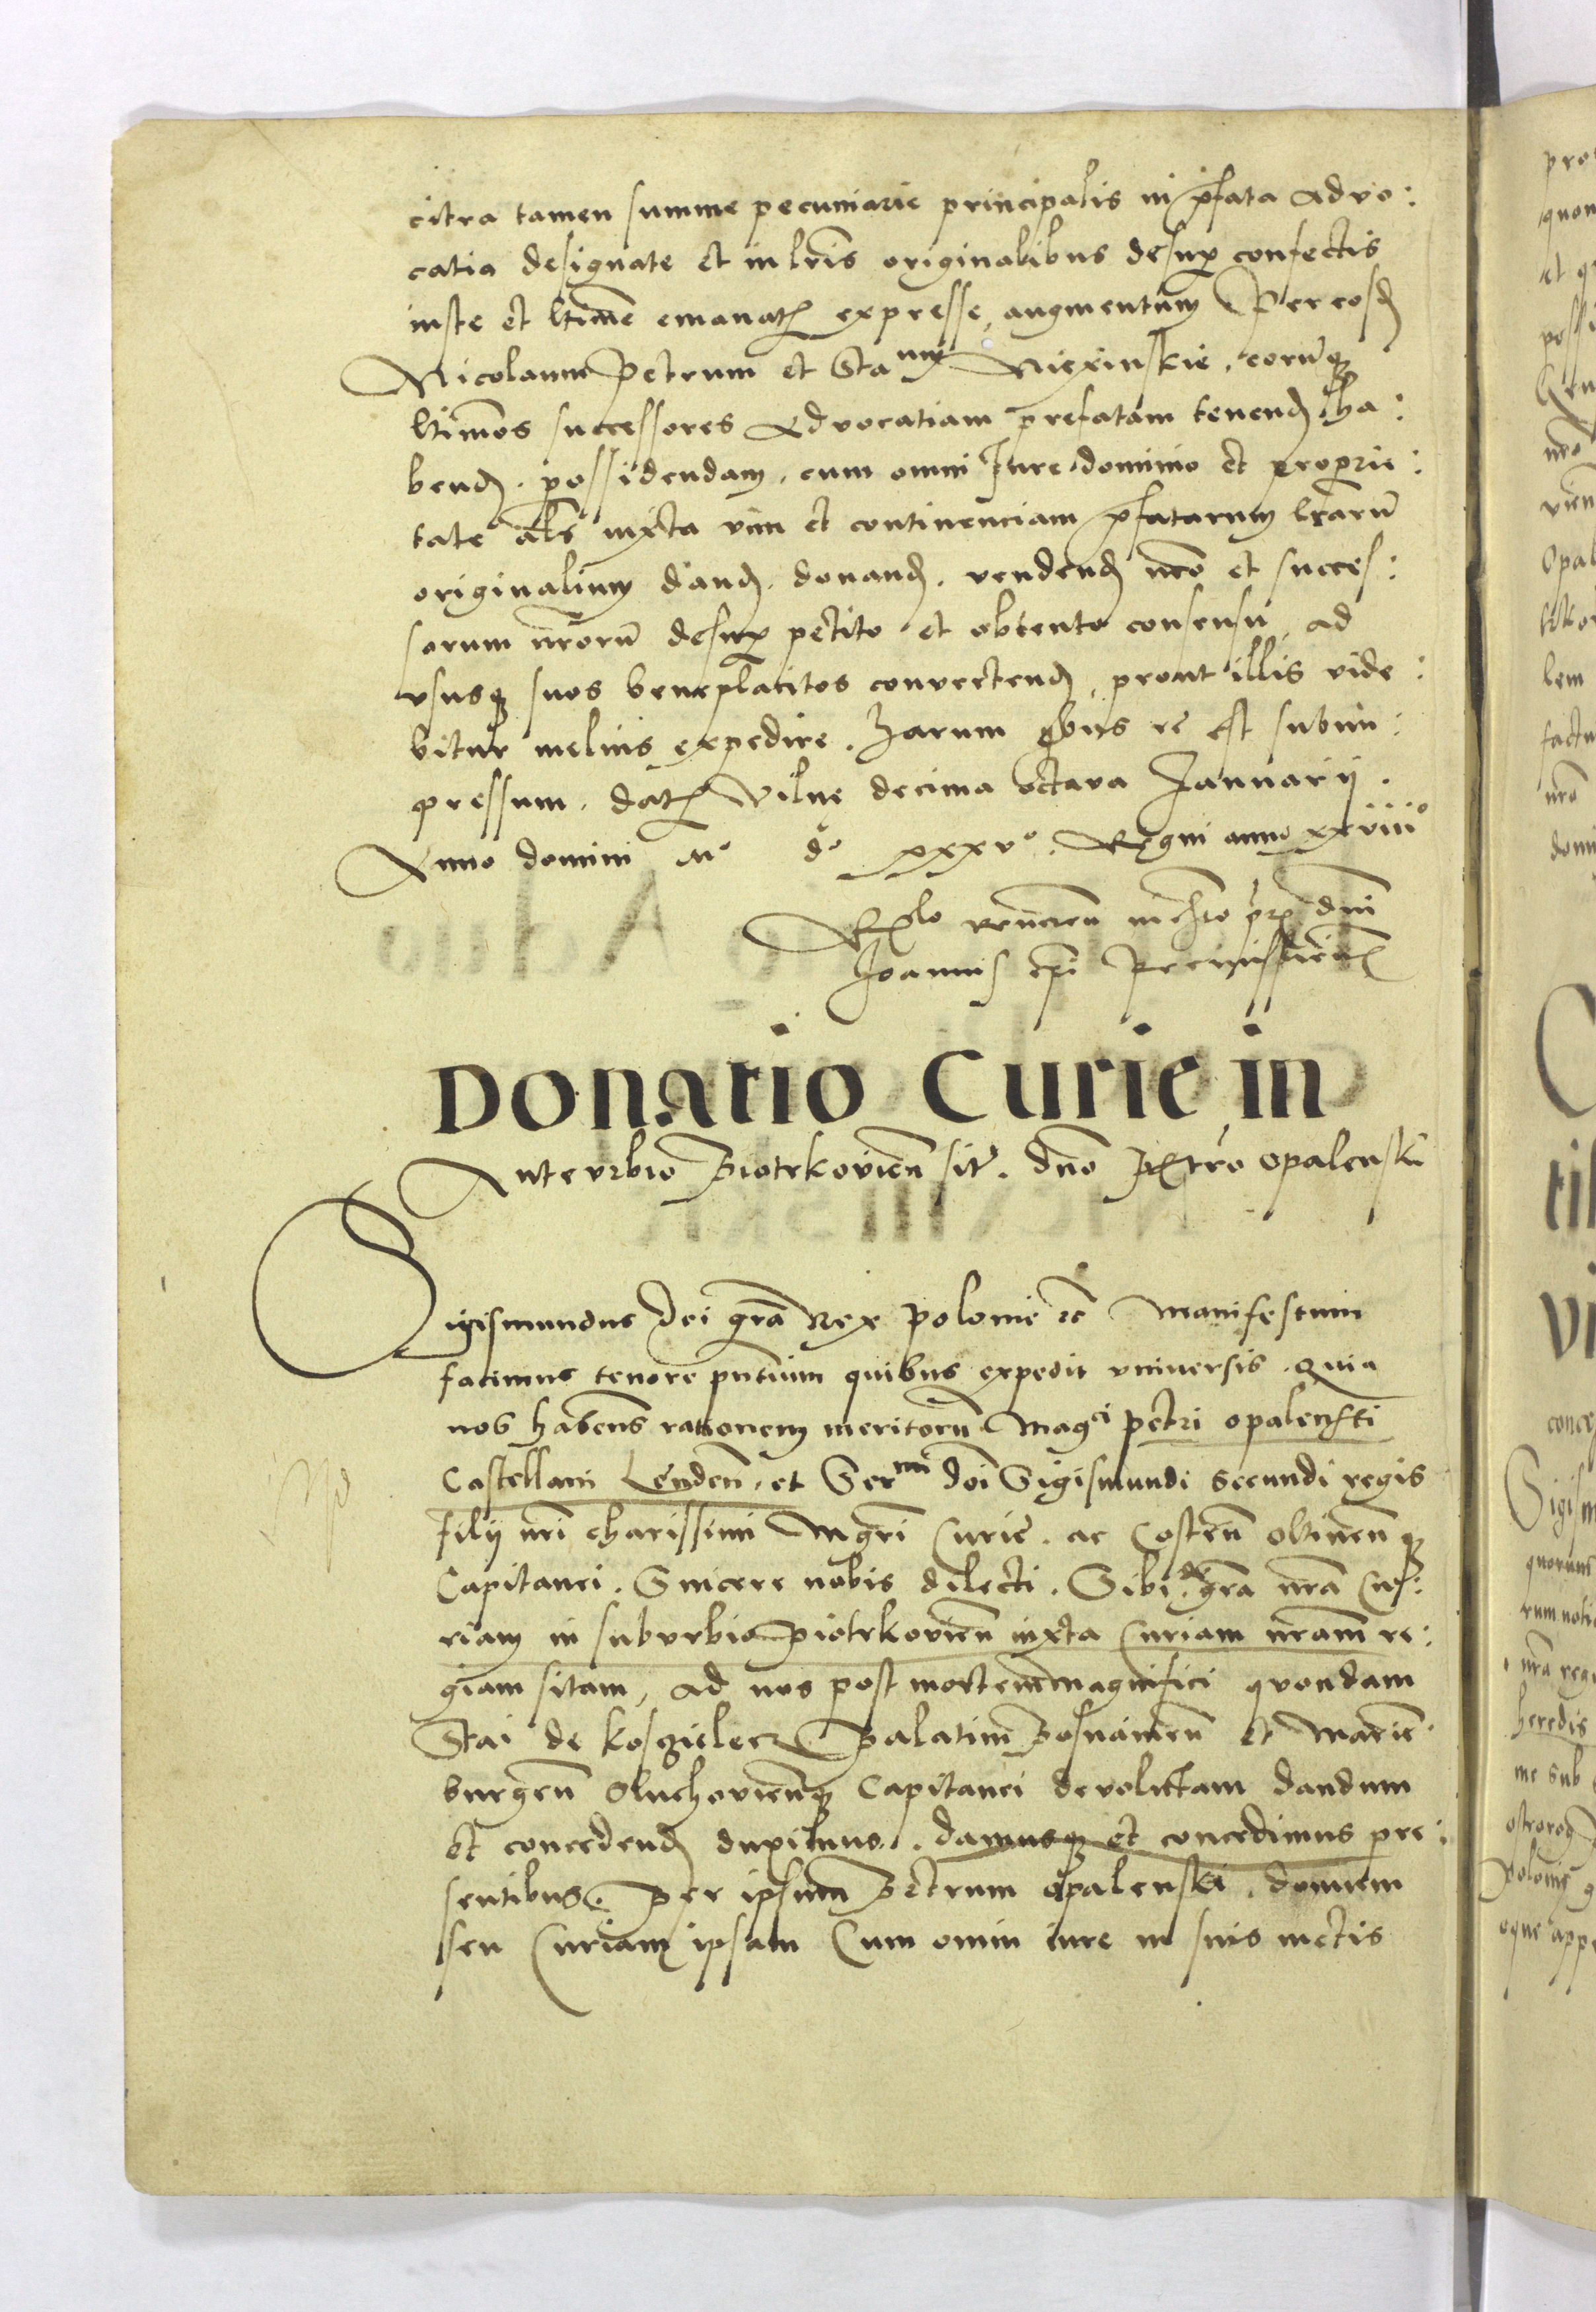 citra tamen summe pecuniarie principalis in p̄fata Advo:
catia designate et in lr̄is originalibus desup confectis
iuste et ltime emanat expresse, augmentum Per eosd
Nicolaum Petrum et Staum Niexinskie, eorūq
ltimos successores Advocatiam prefatam tenend, ha:
bend. possidendam, cum omni Iure dominio et proprie:
tate als iuxta vim et continenciam p̄fatarum lr̄arū
originalium dand. donand. vendend nr̄o et succes:
sorum nr̄orū desup petito et obtento consensu, ad
vsusq suos beneplacitos convertend, prout illis vide:
bitur melius expedire. Harum qbus re est subim:
pressum. dat Vilne decima octava Ianuarij.
Anno domini Mo do xxxvo. Regni anno xxviiio
Rlo Reueren in chro pr̄is dn̄i
Ioannis ep̄i Premisslien
Donatio Curie in
Ante vrbio Piotrkovien̄ sit. dn̄o Petro opalenski
Sigismundus Dei gr̄a Rex polonie etc Manifestum
facimus tenore pn̄tium quibus expedit vniversis. Quia
nos habens rationem meritorū Magci petri opalensti
Castellani Lenden̄, et Sermi doi Sigismundi secundi regis
filij nr̄i charissimi Mgr̄i Curie. ac Costen̄ oltinen̄ q
Capitanei. Sincere nobis dilecti. Sibi de gr̄a nr̄a Cu:
riam in suburbio piotrkovien̄ iuxta Curiam nr̄am re:
giam sitam, ad nos post mortem magnifici quondam
Stai de Kosgielecz Palatini Posnanien̄ et Marie:
burgen̄ Oluchovien̄q Capitanei devolutam dandum
et concedend duximus. damusq et concedimus pre:
sentibus. Per ipsum Petrum opalenski. domum
seu Curiam ipsam Cum omni iure in suis metis